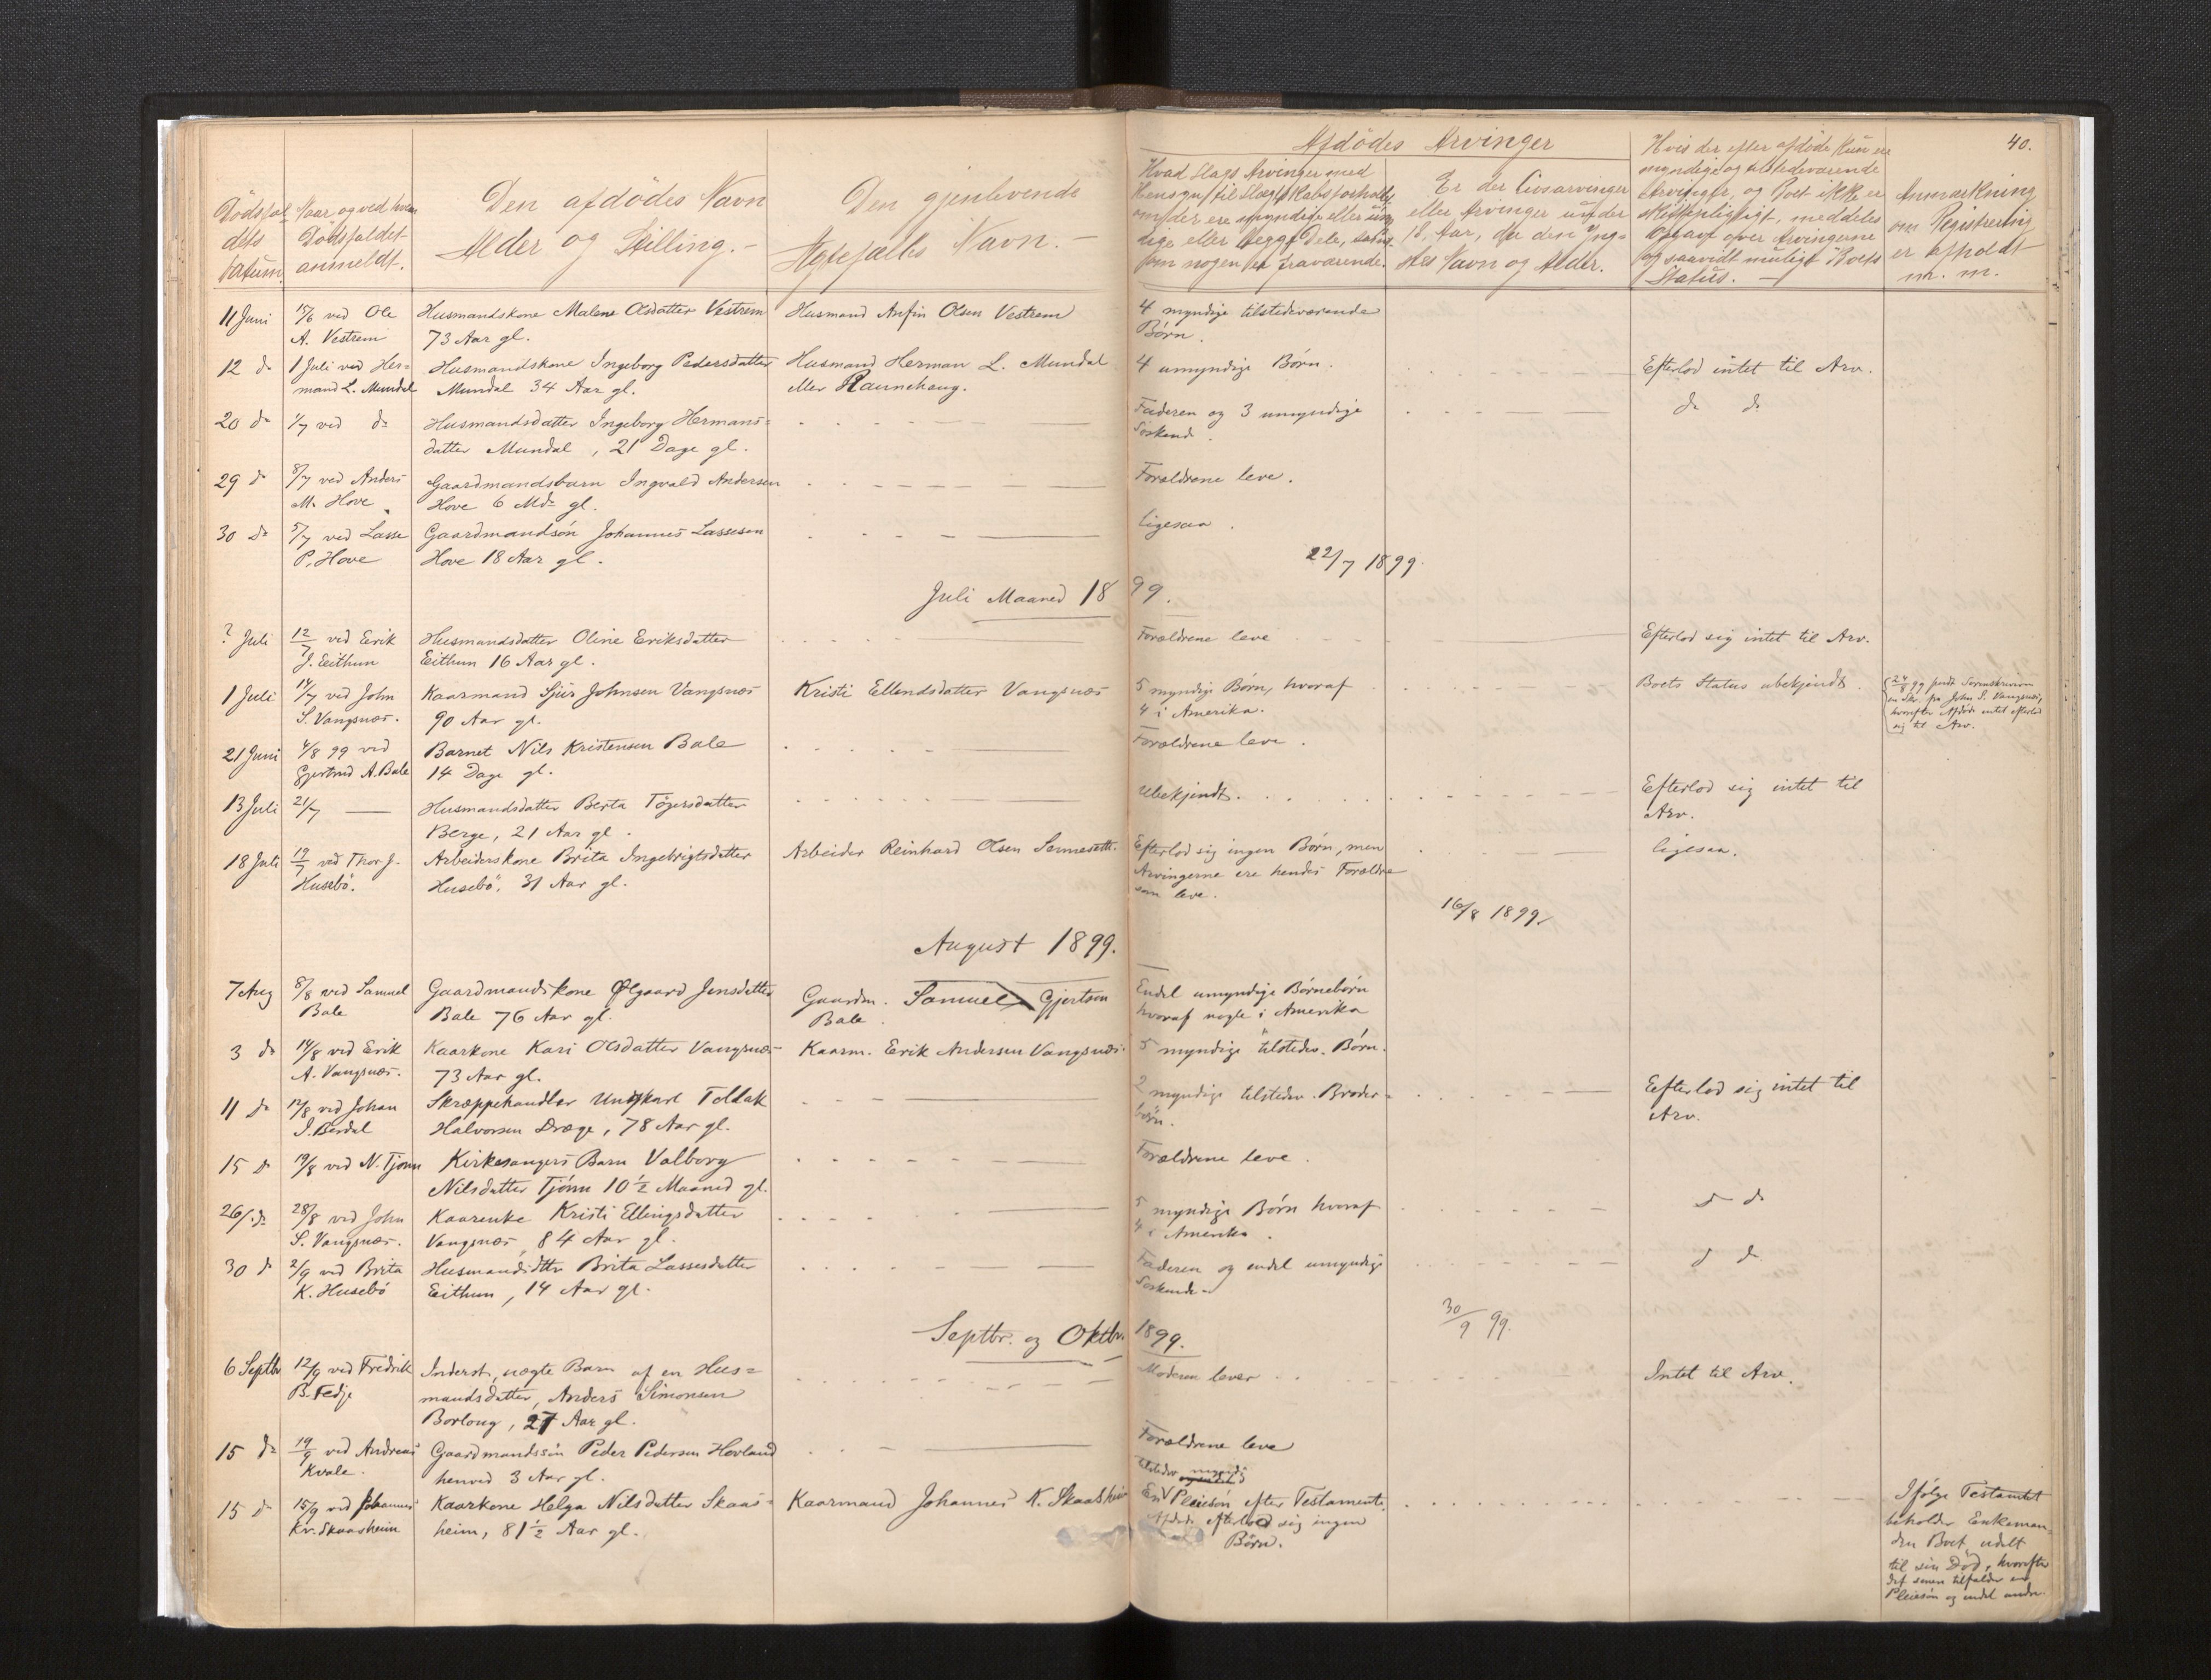 40.
Afdödes Arvinger
Dödsfal
dets
Datum
Naar og ved hvem
Dödsfaldet
anmeldt.
Den afdödes Navn
Alder og Stilling.-
Den gjenlevende
Ægtefælles Navn.-
Hvad Slags Arvinger med
Hensyn til Slægtskabsforholdet
om der ere umyndige eller myn
dige eller begge Dele, samt
om nogen er fraværende.
Er der Livsarvinger
eller Arvinger under
18 Aar, da den Yng-
stes Navn og Alder.
Hvis der efter afdöde kun ere
myndige og tilstedeværende
Arvinger, og Boet ikke er
skiftepligtigt, meddeles
Opgave over Arvingerne
og saavidt muligt Boets
Status.
Anmærkning
om Registrering
er afholdt
m. m.
11 Juni 15/6 ved Ole Husmandskone Malene Olsdatter Vestrem Husmand Anfin Olsen Vestrem 4 myndige tilstedeværende
A. Vestrem 73 Aar gl. Börn.
12 do 1 Juli ved Her= Husmandskone Ingeborg Pedersdatter Husmand Herman L. Mundal 4 umyndige Börn. Efterlod intet til Arv.
mand L. Mundal Mundal 34 Aar gl. eller Raunehaug.
20 do 1/7 ved do Husmandsdatter Ingeborg Hermans= Faderen og 3 umyndige do do
datter Mundal, 21 Dage gl. Söskend.
29 do 8/7 ved Anders Gaardmandsbarn Ingvald Andersen Forældrene leve.
M. Hove Hove 6 Mdr gl.
30 do 5/7 ved Lasse Gaardmandsön Johannes Lassesen ligesaa.
P. Hove Hove 18 Aar gl.
22/7 1899.
Juli Maaned 1899.
? Juli 12/7 ved Eirik Husmandsdatter Oline Eriksdatter Forældrene leve Efterlod sig intet til Arv.
J. Eithun Eithun 16 Aar gl.
1 Juli 14/7 ved John Kaarmand Sjur Johnsen Vangsnæs Kristi Ellendsdatter Vangsnæs 5 myndige Börn, hvoraf Boets Status ubekjendt.
S. Vangsnæs. 90 Aar gl. 4 i Amerika.
24/8 99
fra John S. Vangsnæs,
hvorefter Afdöde intet efterlod
sig til Arv.
21 Juni 4/8 99 ved Barnet Nils Kristensen Bale Forældrene leve.
Gjertrud A. Bale 14 Dage gl.
13 Juli 21/7 — Husmandsdatter Berta Tögersdatter Ubekjendt. Efterlod sig intet til
Berge, 21 Aar gl. Arv.
18 Juli 19/7 ved Thor J. Arbeiderskone Brita Ingebrigtsdatter Arbeider Reinhard Olsen Efterlod sig ingen Börn, men ligesaa.
Husebö. Husebö, 31 Aar gl. Arvingerne ere hendes Forældre
som leve.
16/8 1899.
August 1899.
7 Aug 8/8 ved Samuel Gaardmandskone Ølgaard Jensdatter Gaardm. Samuel Gjertsen Endel umyndige Börnebörn
Bale Bale 76 Aar gl. Bale. hvoraf nogle i Amerika
3 do 14/8 ved Erik Kaarkone Kari Olsdatter Vangsnæs Kaarm. Erik Andersen Vangsnæs. 5 myndige tilstedev. Börn.
A. Vangsnæs. 73 Aar gl.
11 do 12/8 ved Johan Skræppehandler Ungkarl Tollak 2 myndige tilstedev. Broder= Eefterlod sig intet til
J. Berdal Halvorsen Dræge, 78 Aar gl. börn. Arv.
15 do 19/8 ved N. Tjönn Kirkesangers Barn Valborg Forældrene leve.
Nilsdatter Tjönn 10½ Maaned gl.
26/. do 28/8 ved John Kaarenke Kristi Ellingsdatter 5 myndige Börn hvoraf d d
S. Vangsnæs. Vangsnæs, 84 Aar gl. 4 i Amerika.
30 d 2/9 ved Brita Husmandsdttr Brita Lassesdatter Faderen og endel umyndige d d
K. Husebö Eithun, 14 Aar gl. Söskende
30/9 99.
Septbr. og Oktbr. 1899.
6 Septbr 12/9 ved Fredrik Inderst, uægte Barn af en Hus= Moderen lever Intet til Arv.
B. Fedje mandsdatter, Anders Simonsen
Borlaug, 27 Aar gl.
15 do 19/9 ved Andreas Gaardmandssön Peder Pedersen Hovland Forældrene leve
Kvale. henved 3 Aar gl.
tilstedev myndig
15 do 15/9 ved Johannes Kaarkone Helga Nilsdatter Skaas= Kaarmand Johannes K. Skaasheim En Pleiesön efter Testamente.
Kr. Skaasheim heim, 81½ Aar gl. Afdöde efterlod sig ingen
Börn.
Ifölge Testamtet
beholder Enkeman=
den Boet udelt
til sin Död, hvorefter
det senere tilfalder en
Pleiesön og endel andre